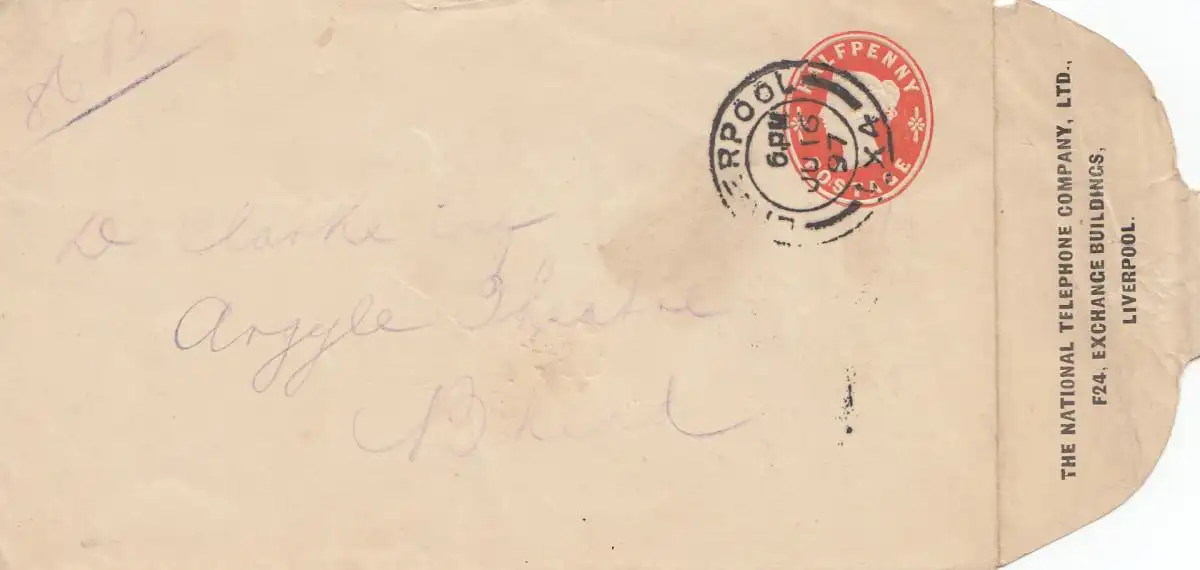 HALFPENNY
POSTAGE
LIVERPOOL
6.PM
JU 16
97
LX4
D Clarke Esq
Argyle Theatre
Bhead
THE NATIONAL TELEPHONE COMPANY, LTD.,
F24, EXCHANGE BUILDINGS,
LIVERPOOL.